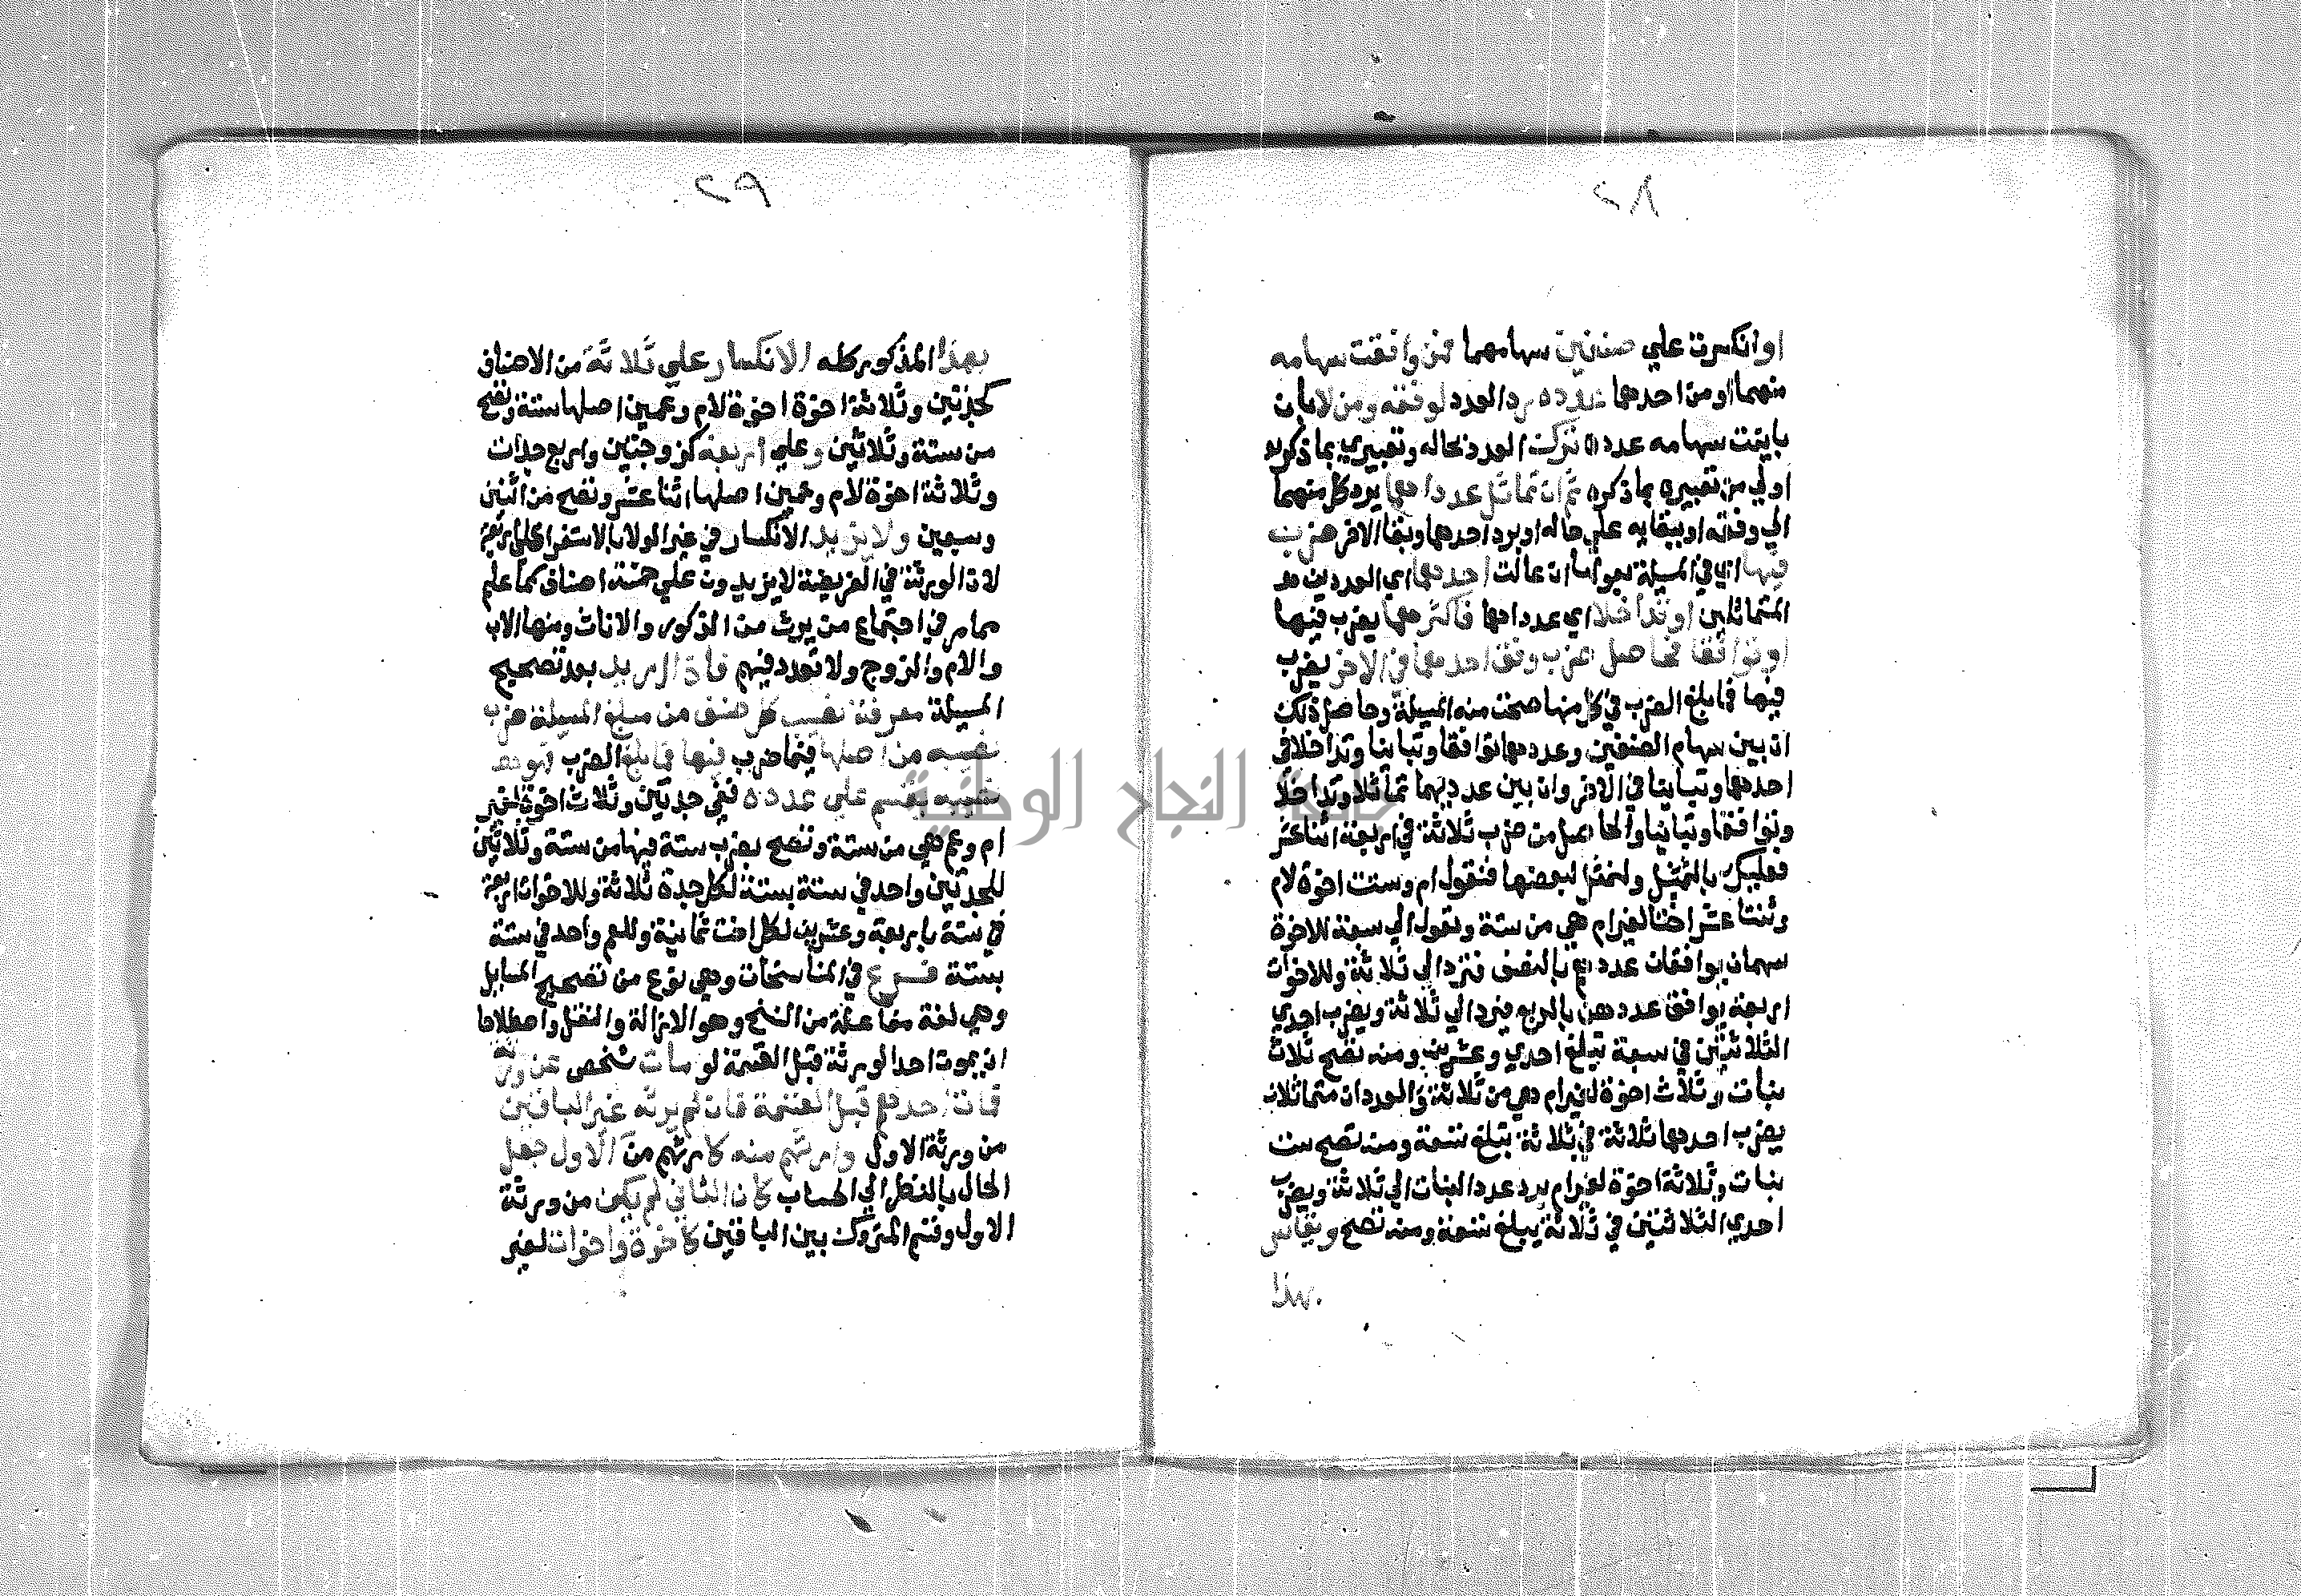 ٢٨
او انكسرت علي صنفين سهامهما فمن وافقت سهامه
منهما او من احدهما عدده رد العدد لوفقه ومن لا بان
باينت سهامه عدده تركت العدد بحاله وتعبيري بما ذكر
اولي من تعبيره بما ذكره ثم ان تماثل عدداهما يرد كل منهما
الي وفقه او ببقايه علي حاله او برد احدهما وبقا الاخر ضرب
فيها اي في المسيلة بعولها ان عالت احدهما اي العددين
المتماثلين او تداخلا اي عدداهما فاكثرهما يضرب فيها
او توافقا فحاصل ضرب وفق احدهما في الاخر يضرب
فيها فما بلغ الضرب في كل منها صحت منه المسيلة وحاصل ذلك
ان بين سهام الصنفين وعددهما توافقا وتباينا وتداخلا في
احدهما وتباينا في الاخر وان بين عدديهما تماثلا وتداخلا
وتوافقا وتباينا والحاصل من ضرب ثلاثة في اربعة اثنا عشر
فعليك بالتمثيل ولنمثل لبعضها فنقول ام وستت اخوة لام
وثنتا عشر اختا لغير ام هي من ستة وتعول الي سبعة للاخوة
سهمان يوافقان عددهم بالنصف فتزد الي ثلاثة وللاخوات
اربعة يوافق عددهن بالربع فيرد الي ثلاثة ويضرب احدي
الثلاثتين في سبعة تبلغ احدي وعشرين ومنه تصح ثلاث
بنات وثلاث اخوة لغير ام هي من ثلاثة والعددان متماثلان
يضرب احدهما ثلاثة في ثلاثة تبلغ تسعة ومنه تصح ست
بنات وثلاثة اخوة لغير ام يرد عدد البنات الي ثلاثة ويضرب
احدي الثلاثتين في ثلاثة يبلغ تسعة ومنه تصح ويقاس
بهذا
٢٩
بهذا المذكور كله الانكسار علي ثلاثة من الاصناف
كجدتين وثلاثة اخوة لام وعمين اصلها ستة وتصح
من ستة وثلاثين وعلي اربعة كزوجتين واربع جدات
وثلاثة اخوة لام وعمين اصلها اثنا عشر وتصح من اثنين
وسبعين ولا يزيد الانكسار في غير الولا بالاستقرا علي اربعة
لان الورثة في الفريضة لا يزيدون علي خمسة اصناف كما علم
مما مر في اجتماع من يرث من الذكور والاناث ومنها الاب
والام والزوج ولا تعدد فيهم فان اريد بعد تصحيح
المسيلة معرفة نصيب كل صنف من مبلغ المسيلة ضرب
نصيبه من اصلها فيما ضرب فيها فما بلغ الضرب فهو
نصيبه يقسم علي عدده ففي جدتين وثلاث اخوات لغير
ام وعم هي من ستة وتصح بضرب ستة فيها من ستة وثلاثين
للجدتين واحد في ستة بستة لكل جدة ثلاثة وللاخوات اربعة
في ستة باربعة وعشرين لكل اخت ثمانية وللعم واحد في ستة
بستة فرع في المناسخات وهي نوع من تصحيح المسايل
وهي لغة مفاعلة من النسخ وهو الازالة والنقل واصطلاحا
ان يموت احد الورثة قبل القسمة لو مات شخص عن ورثة
فمات احدهم قبل القسمة فان لم يرثه غير الباقين
من ورثة الاول وارثهم منه كارثهم من الاول جعل
الحال بالنظر الي الحساب كان الثاني لم يكن من ورثة
الاول وقسم المتروك بين الباقين كاخوة واخوات لغير
جامعة النجاح الوطنية